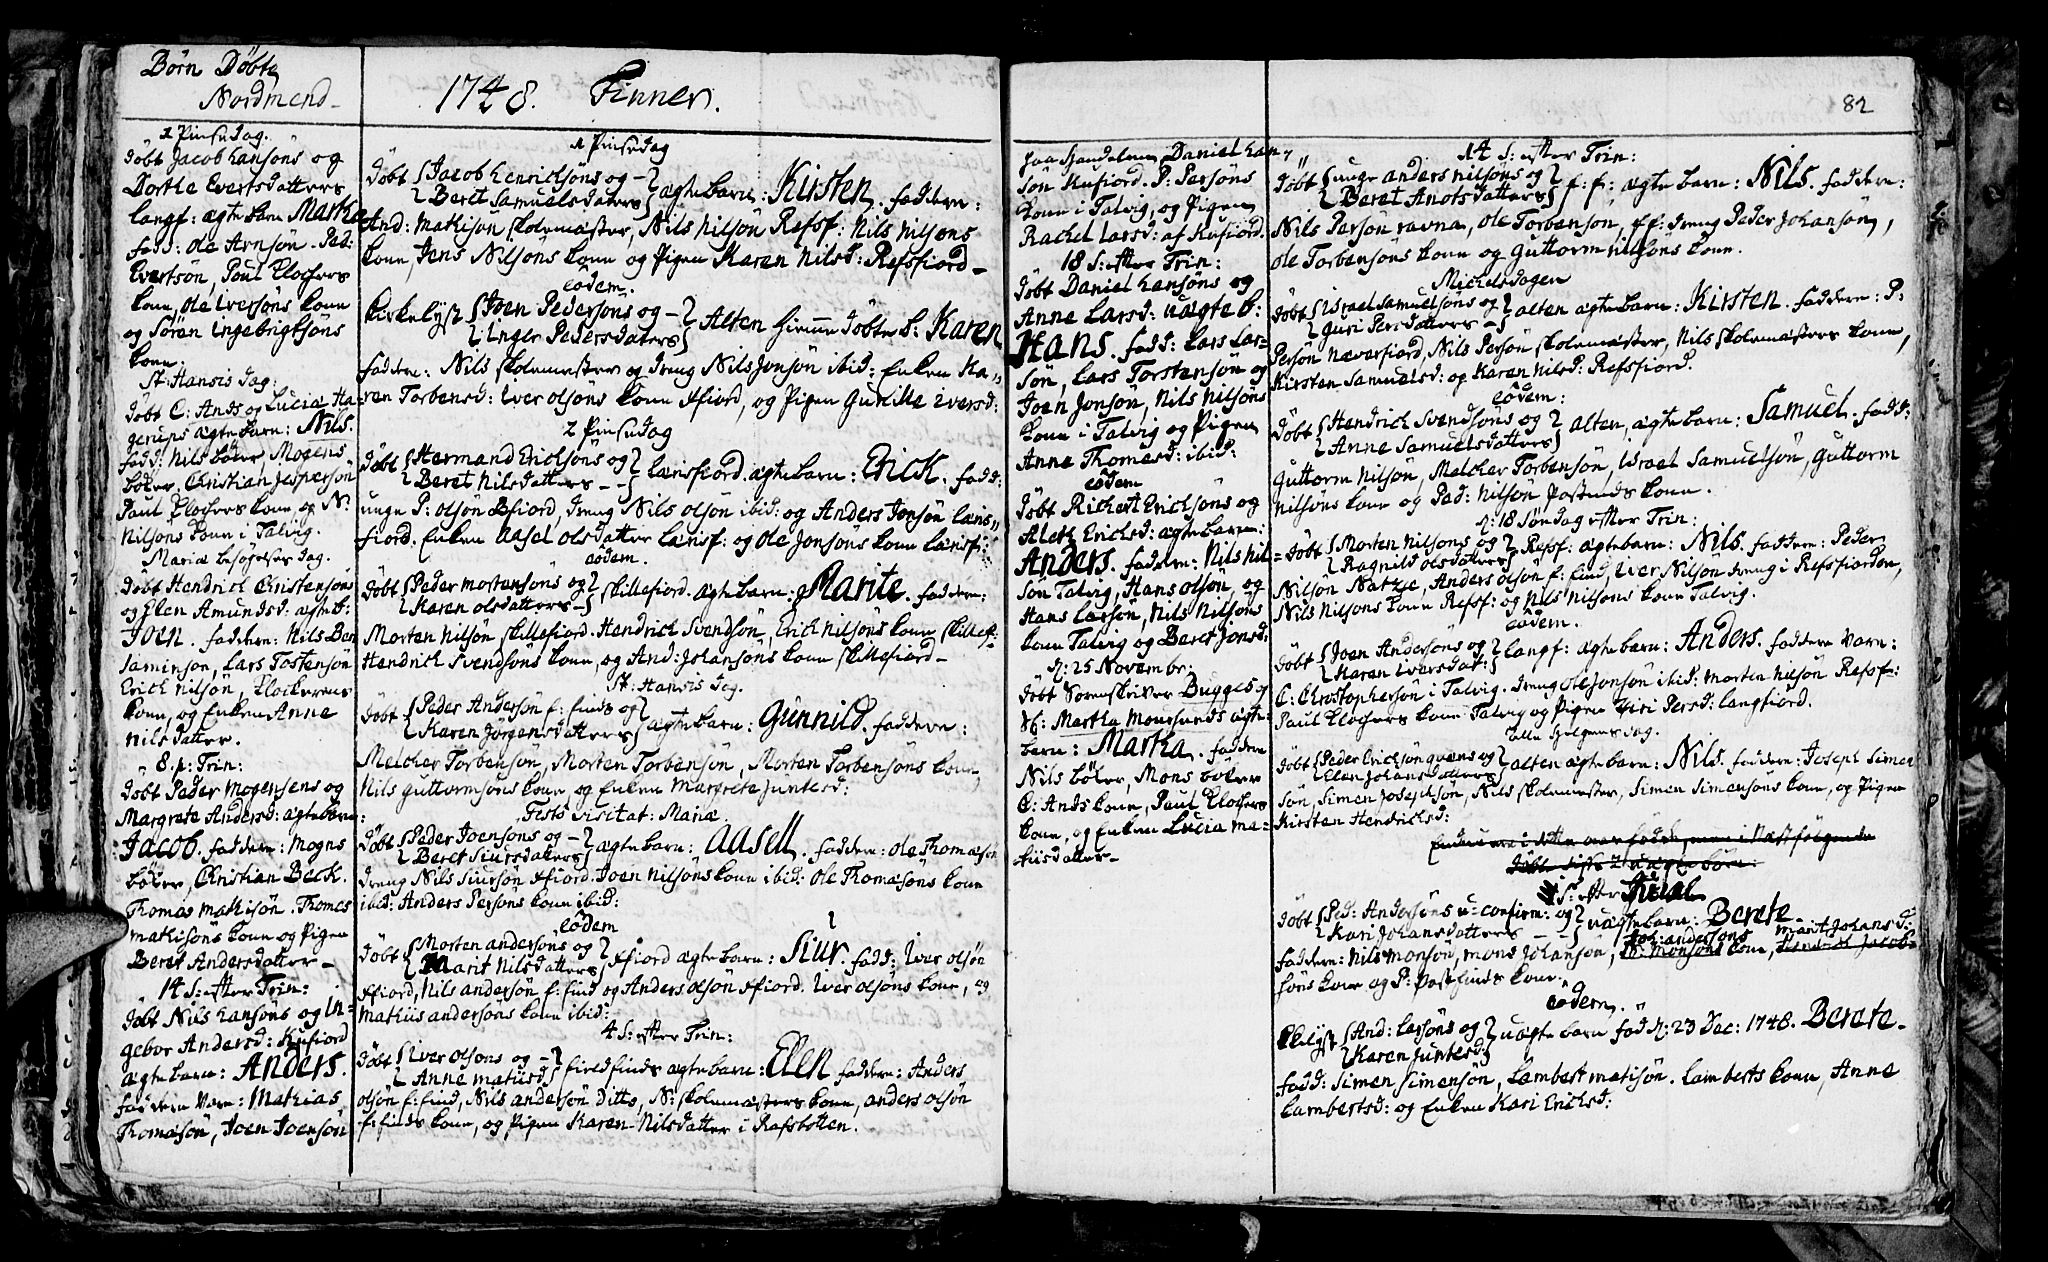 Børn Döbte
Nordmend
1748. Finner.
1 Pinsedag.
döbt Jacob Hansöns og
Dorthe Evertsdatters
langf: ægte barn Martha
fadd: Ole Arnsön. Ped:
Evertsön, Poul Klochers
kone, Ole Iversöns kone
og Sören Ingebrigtsöns
kone.
St: Hansis dag:
döbt C: Ands og Luciæ Ha-
gerups ægte barn: Nils.
fadd: Nils böker, Mogens
böker, Christian Jespersön
Paul Klochers kone og N:
Nilsöns kone i Talvig.
Mariæ besøgelses dag.
döbt Hendrich Christensöns
og Elen Amundsd: ægte b:
Joen. faddere: Nils Ben
jaminsön, Lars Tostensön
Erich Nilsön, Klockerens
kone, og Enken Anne
Nils datter.
8. p: Trin:
döbt Peder Mogensens og
Margrete Andersd: ægte barn:
Jacob. faddere: Mogns
böker, Christian Beck.
Thomas Mathisön. Thomes
Mathisöns kone og Pigen
Beret Andersdatter
14 S: efter Trin:
döbt Nils Hansöns og In-
gebor Andersd: Kufiord
ægte barn: Anders.
faddere vare: Mathias
Thomasön, Joen Joensön
1 Pinsedag
döbt Jacob Henrichsöns og
Beret Samuelsdaters ægte barn: Kirsten. faddere:
And: Mathisön skolemæster, Nils Nilsön Refsf: Nils Nilsöns
kone, Jens Nilsöns kone og Pigen Karen Nilsd: Refsfiord
eodem.
Kirkelyst Joen Pedersöns og
Inger Pedersdaters Alten hieme döbte b: Karen
faddere: Nils skolemester og dreng Nils Jonsön ibid: Enken Ka-
ren Torbensd: Iver olsöns kone Kfiord, og Pigen Gunille Iversd:
2 Pinsedag
döbt Hermand Ericksöns og
Beret Nilsdatters lænsfiord ægte barn: Erick. fadd:
unge P: olsön Bfiord, dreng Nils olsön ibid: og Anders Jonsön læns-
fiord. Enken Aasel olsdatter Lænsf: og Ole Jonsons kone Lænsf:
eodem.
döbt Peder Mortensöns og
Karen olsdatters skillefiord. ægte barn: Marite. faddere:
Morten Nilsön skillefiord. Hendrick Svendsön, Erick Nilsöns kone skillef:
Hendrick Svendsöns kone, og And: Johansons kone skillefiord
St: Hansis dag.
döbt Peder Andersön f: finds og
Karen Jörgensdatters ægte barn: Gunnild. faddere:
Melcher Torbensön, Morten Torbensön, Morten Torbensöns kone
Nils Guttormsöns kone og Enken Margrete Juntesd:
Festo visitat: Mariæ.
döbt Peder Joensöns og
Beret Siursdatters ægte barn: Aasell. faddere: Ole Thomæsön
dreng Nils Siursön Kfiord. Joen Nilsöns kone ibid: Ole Thomæsöns kone
ibid: Anders Persöns kone ibid:
eodem
döbt Morten andersöns og
Marit Nilsdatters Kfiord ægte barn: Siur. fadd: Iver olsön
Kfiord, Nils andersön f: find og Anders olsön Kfiord. Iver olsöns kone, og
Mathiis andersöns kone ibid:
4 S: efter Trin:
döbt Iver olsöns og
Anne Matiisd fiordfinds ægte barn: Elen faddere: Anders
olsön f: find, Nils andersön Ditto, N: skolemæsters kone, anders olsön
f: finds kone, og Pigen Karen Nilsdatter i Rafsbotten.
82
paa Sandelven Daniel Han-
sön Kufiord. P: Persöns
kone i Talvig, og Pigen
Rachel Larsd: af Kufiord.
18 S: efter Trin:
döbt Daniel Hansöns og
Anne Larsd: uægte b:
Hans. fadd: Lars Lar-
sön, Lars Torstensön og
Joen Jonsön, Nils Nilsöns
kone i Talvig og Pigen
Anne Thomesd: ibid:
eodem
döbt Richert Ericksöns og
Aleth Ericksd: ægte barn:
Anders. faddere: Nils Nil-
sön Talvig, Hans olsön, og
Hans Larsön, Nils Nilsöns
kone Talvig og Beret Jonsd:
d: 25 Novembr:
döbt Sorenskriver Bugges og
M: Martha Moursunds ægte
barn: Martha. faddere
Nils böker, Mons böker
C: Ands kone, Paul Klochers
kone, og Enken Lucia Ma-
thisdatter
14 S: efter Trin:
döbt unge anders Nilsöns og
Beret Anotsdatters f: f: ægte barn: Nils. faddere:
Nils Persön ravna, Ole Torbensön, ff: dreng Peder Johansön,
Ole Torbensöns kone og Guttorm Nilsöns kone.
Michelsdagen
döbt Israel Samuelsöns og
Guri Persdatters alten ægte barn: Kirsten. faddere: P:
Persön Næverfiord, Nils Persön skolemæster, Nils skolemæsters kone,
Kirsten Samuelsd: og Karen Nilsd: Refsfiord.
eodem:
döbt Hendrich Svendsöns og
Anne Samuelsdatters alten ægte barn: Samuel. fadd:
Guttorm Nilsön, Melcher Torbensön, Israel Samuelsön, Guttorm
Nilsöns kone og Ped: Nilsön Postfinds kone.
d: 18 Söndag efter Trin:
döbt Morten Nilsöns og
Ragnild olsdatters Refsf: ægte barn: Nils. faddere: Peder
Nilsön Natzie, Anders olsön f: find, Iver Nilsön dreng i Refsfiorden,
Nils Nilsöns kone Refsf: og Nils Nilsöns kone Talvig.
eodem.
döbt Joen Andersöns og
Karen Iversdat: langf: ægte barn: Anders. faddere vare:
C: Christophersön i Talvig. dreng Ole Jonsön ibid: Morten Nilsön Refsf:
Paul Klochers kone Talvig og Pigen Siri Persd: langfiord.
Alle Helgens dag.
döbt Peder Ericksön qvæns og
Elen Johansdatters alten ægte barn: Nils. faddere: Joseph Simen
sön, Simen Josephsön, Nils skolemæster, Simen Simensöns kone, og Pigen
Kirsten Hendricksd:
S: efter Trin
döbt Ped: Andersöns u: confirm: og
Kari Johansdatters uægte barn: Berete
faddere: Nils Monsön, Mons Johansön, Joh: andersöns kone, Marit Johansd:
söns kone og P: Postfinds kone.
eodem.
Kkelyst And: Larsöns og
Karen Juntesd: uægte barn föd d: 23 Dec: 1748. Berete
fadd: Simen Simensön, Lambert Matisön. Lamberts kone, Anne
Lambertsd: og Enken Kari Ericksd: